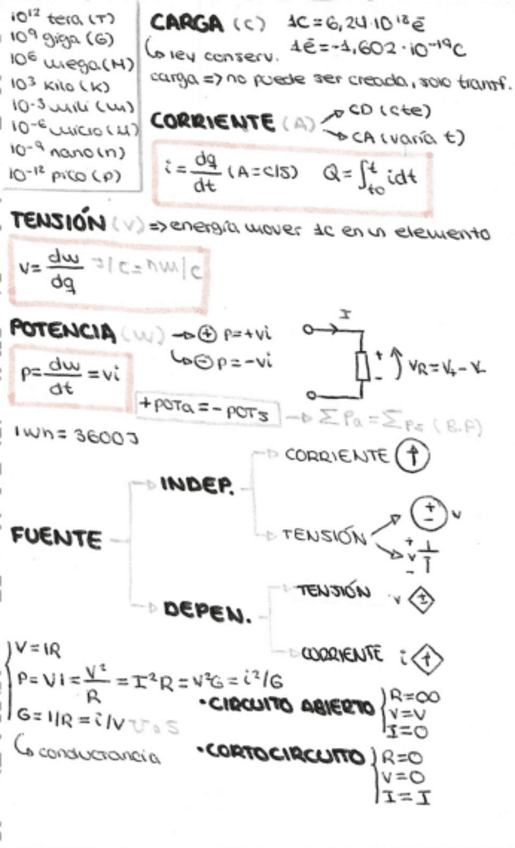 10¹² tera (T)
10⁹ giga (G)
10⁶ mega (M)
10³ kilo (K)
10⁻³ mili (m)
10⁻⁶ micro (μ)
10⁻⁹ nano (n)
10⁻¹² pico (p)
CARGA (C) 1C = 6,24·10¹⁸ē
↳ ley conserv. 1ē = -1,602·10⁻¹⁹C
carga => no puede ser creada, solo transf.
CORRIENTE (A) → CD (cte)
→ CA (varía t)
i = dq/dt (A = C/S) Q = ∫ₜ₀ᵗ idt
TENSIÓN (V) => energía mover 1C en un elemento
v = dw/dq J/C = nm/C
POTENCIA (W) → ⊕ p = +vi
↳ ⊖ p = -vi
p = dw/dt = vi
I
+
-
V_R = V₊ - V₋
+POTa = -POTs → ΣPa = ΣPs (B.P)
1Wh = 3600J
FUENTE
INDEP.
CORRIENTE
TENSIÓN
+ - v
+ v -
DEPEN.
TENSIÓN v ±
CORRIENTE i
V = IR
P = Vi = V²/R = I²R = V²G = i²/G
G = 1/R = i/V ʊ o S
↳ conductancia
• CIRCUITO ABIERTO
R = ∞
V = V
I = 0
• CORTOCIRCUITO
R = 0
V = 0
I = I